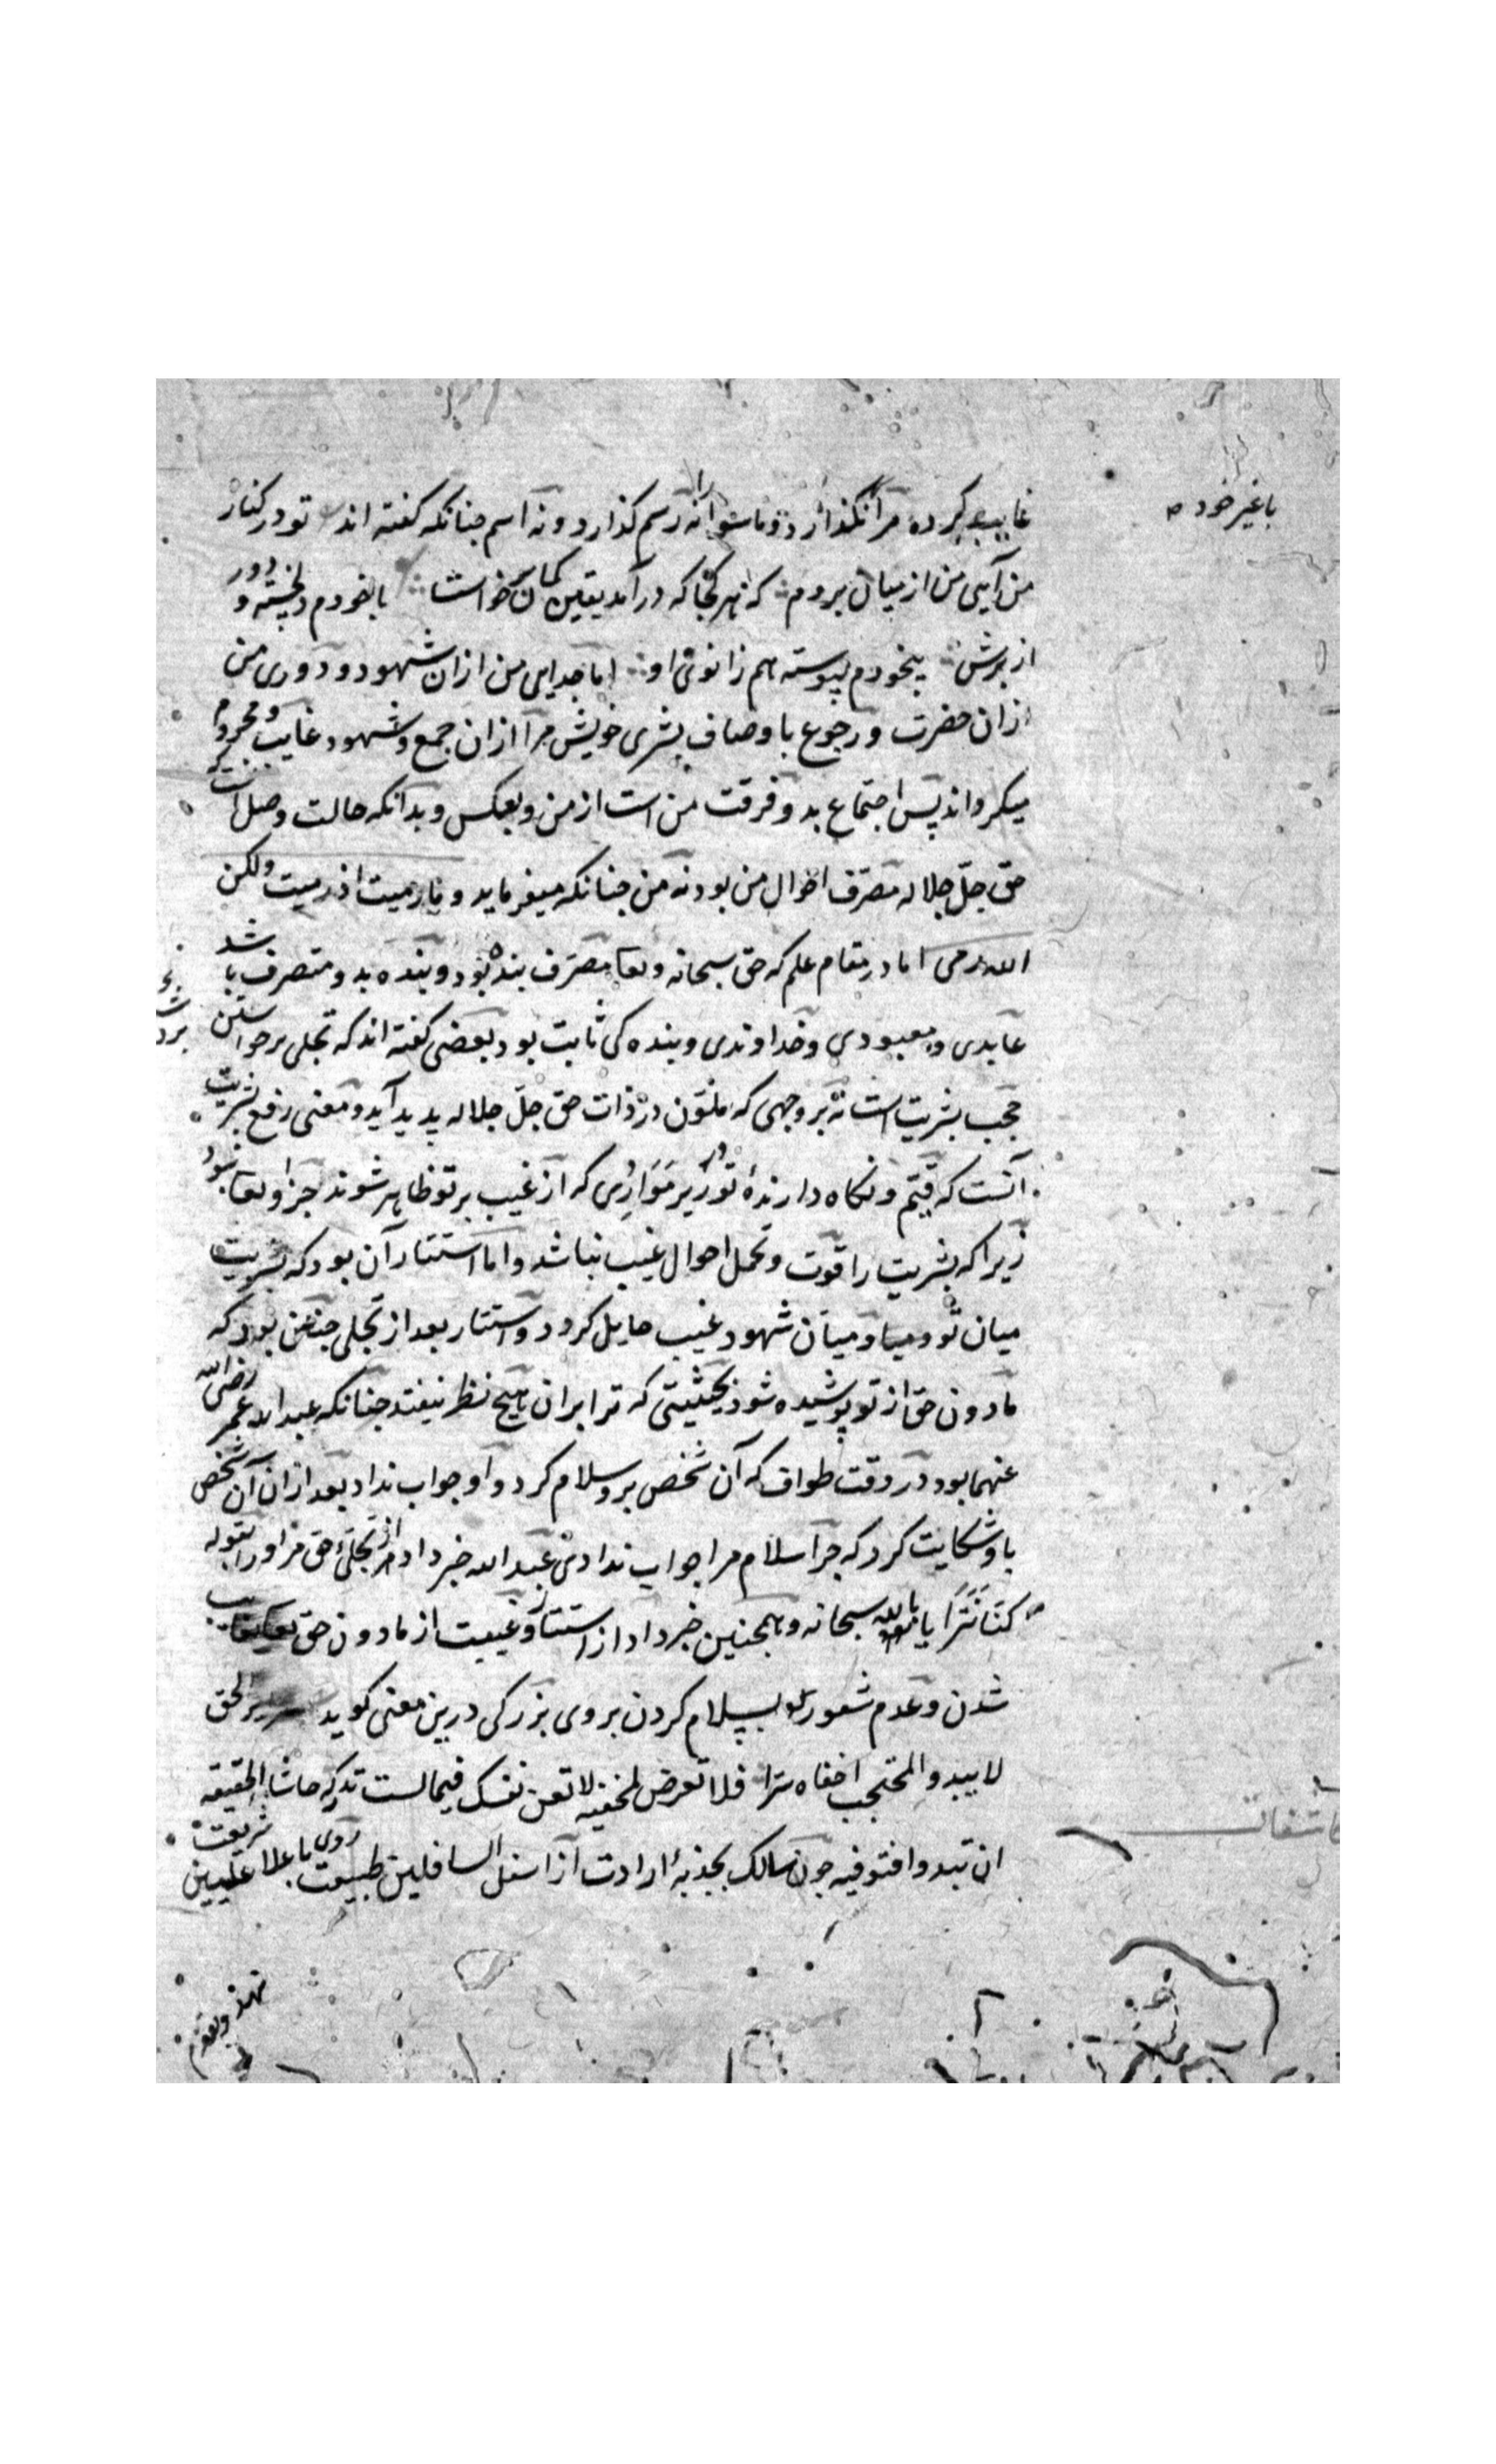 با غیر خود
غایب کرده مرا نگذارد و ماسوا را نه رسم گذارد و نه اسم جنانکه گفته اند تو در کنار
من آیی من از میان بروم که هر کجا که درآمد یقین کمان برخواست باخودم دلخسته و دور
از برش بیخودم پیوسته هم زانوی او اما جدایی من ازان شهود و دوری من
ازان حضرت و رجوع باوصاف بشری خویش مرا ازان جمع و شهود غایب و محروم
میکرداند پس اجتماع بدو فرقت من است از من وبعکس وبدانکه حالت وصل آنست که
حق جلّ جلاله مصرّف احوال من بود نه من جنانکه میفرماید وما رمیت اذ رمیت ولکن
الله رمی اما در مقام علم که حق سبحانه وتعا مصرّف بنده بود و بنده بدو متصرف باشد
عابدی و معبودی و خداوندی و بنده کی ثابت بود بعضی گفته اند که تجلی برخواستن
حجب بشریت است نه بر وجهی که متلوّن در ذات حق جلّ جلاله پدید آید و معنی رفع بشریت
آنست که قیّم و نکاه دارندهٔ تو در زیر مَوَارِدی که از غیب بر تو ظاهر شوند جز او تعا نبود
زیرا که بشریت را قوت و تحمل احوال غیب نباشد واما استتار آن بود که بشریت
میان تو و میان شهود غیب حایل کردد و استتار بعد از تجلی جنین بود که
مادون حق از تو پوشیده شود بحیثیتی که ترا بران هیچ نظر نیفتد جنانکه عبد الله عمر رضی الله
عنهما بود در وقت طواف که آن شخص برو سلام کرد و او جواب نداد بعد ازان آن شخص
باو شکایت کرد که جرا سلام مرا جواب ندادی عبد الله خبر داد از تجلّی حق مر او را بقوله
کنّا نَتَرَایا الله سبحانه و همجنین خبر داد از استتار و غیبت از مادون حق تعا
شدن و عدم شعور او بسلام کردن بر وی بزرکی درین معنی کوید سرایر الحق
لا یبدو المحتجب اخفاه سرا فلا تعرض لمخفیه لا تعن نفسک فیما لست تدرکه حاشا الحقیقه
ان تبدو افتوفیه جون سالک بجذبهٔ ارادت از اسفل السافلین طبیعت روی باعلا علیین شریعت
نهد و بقدم